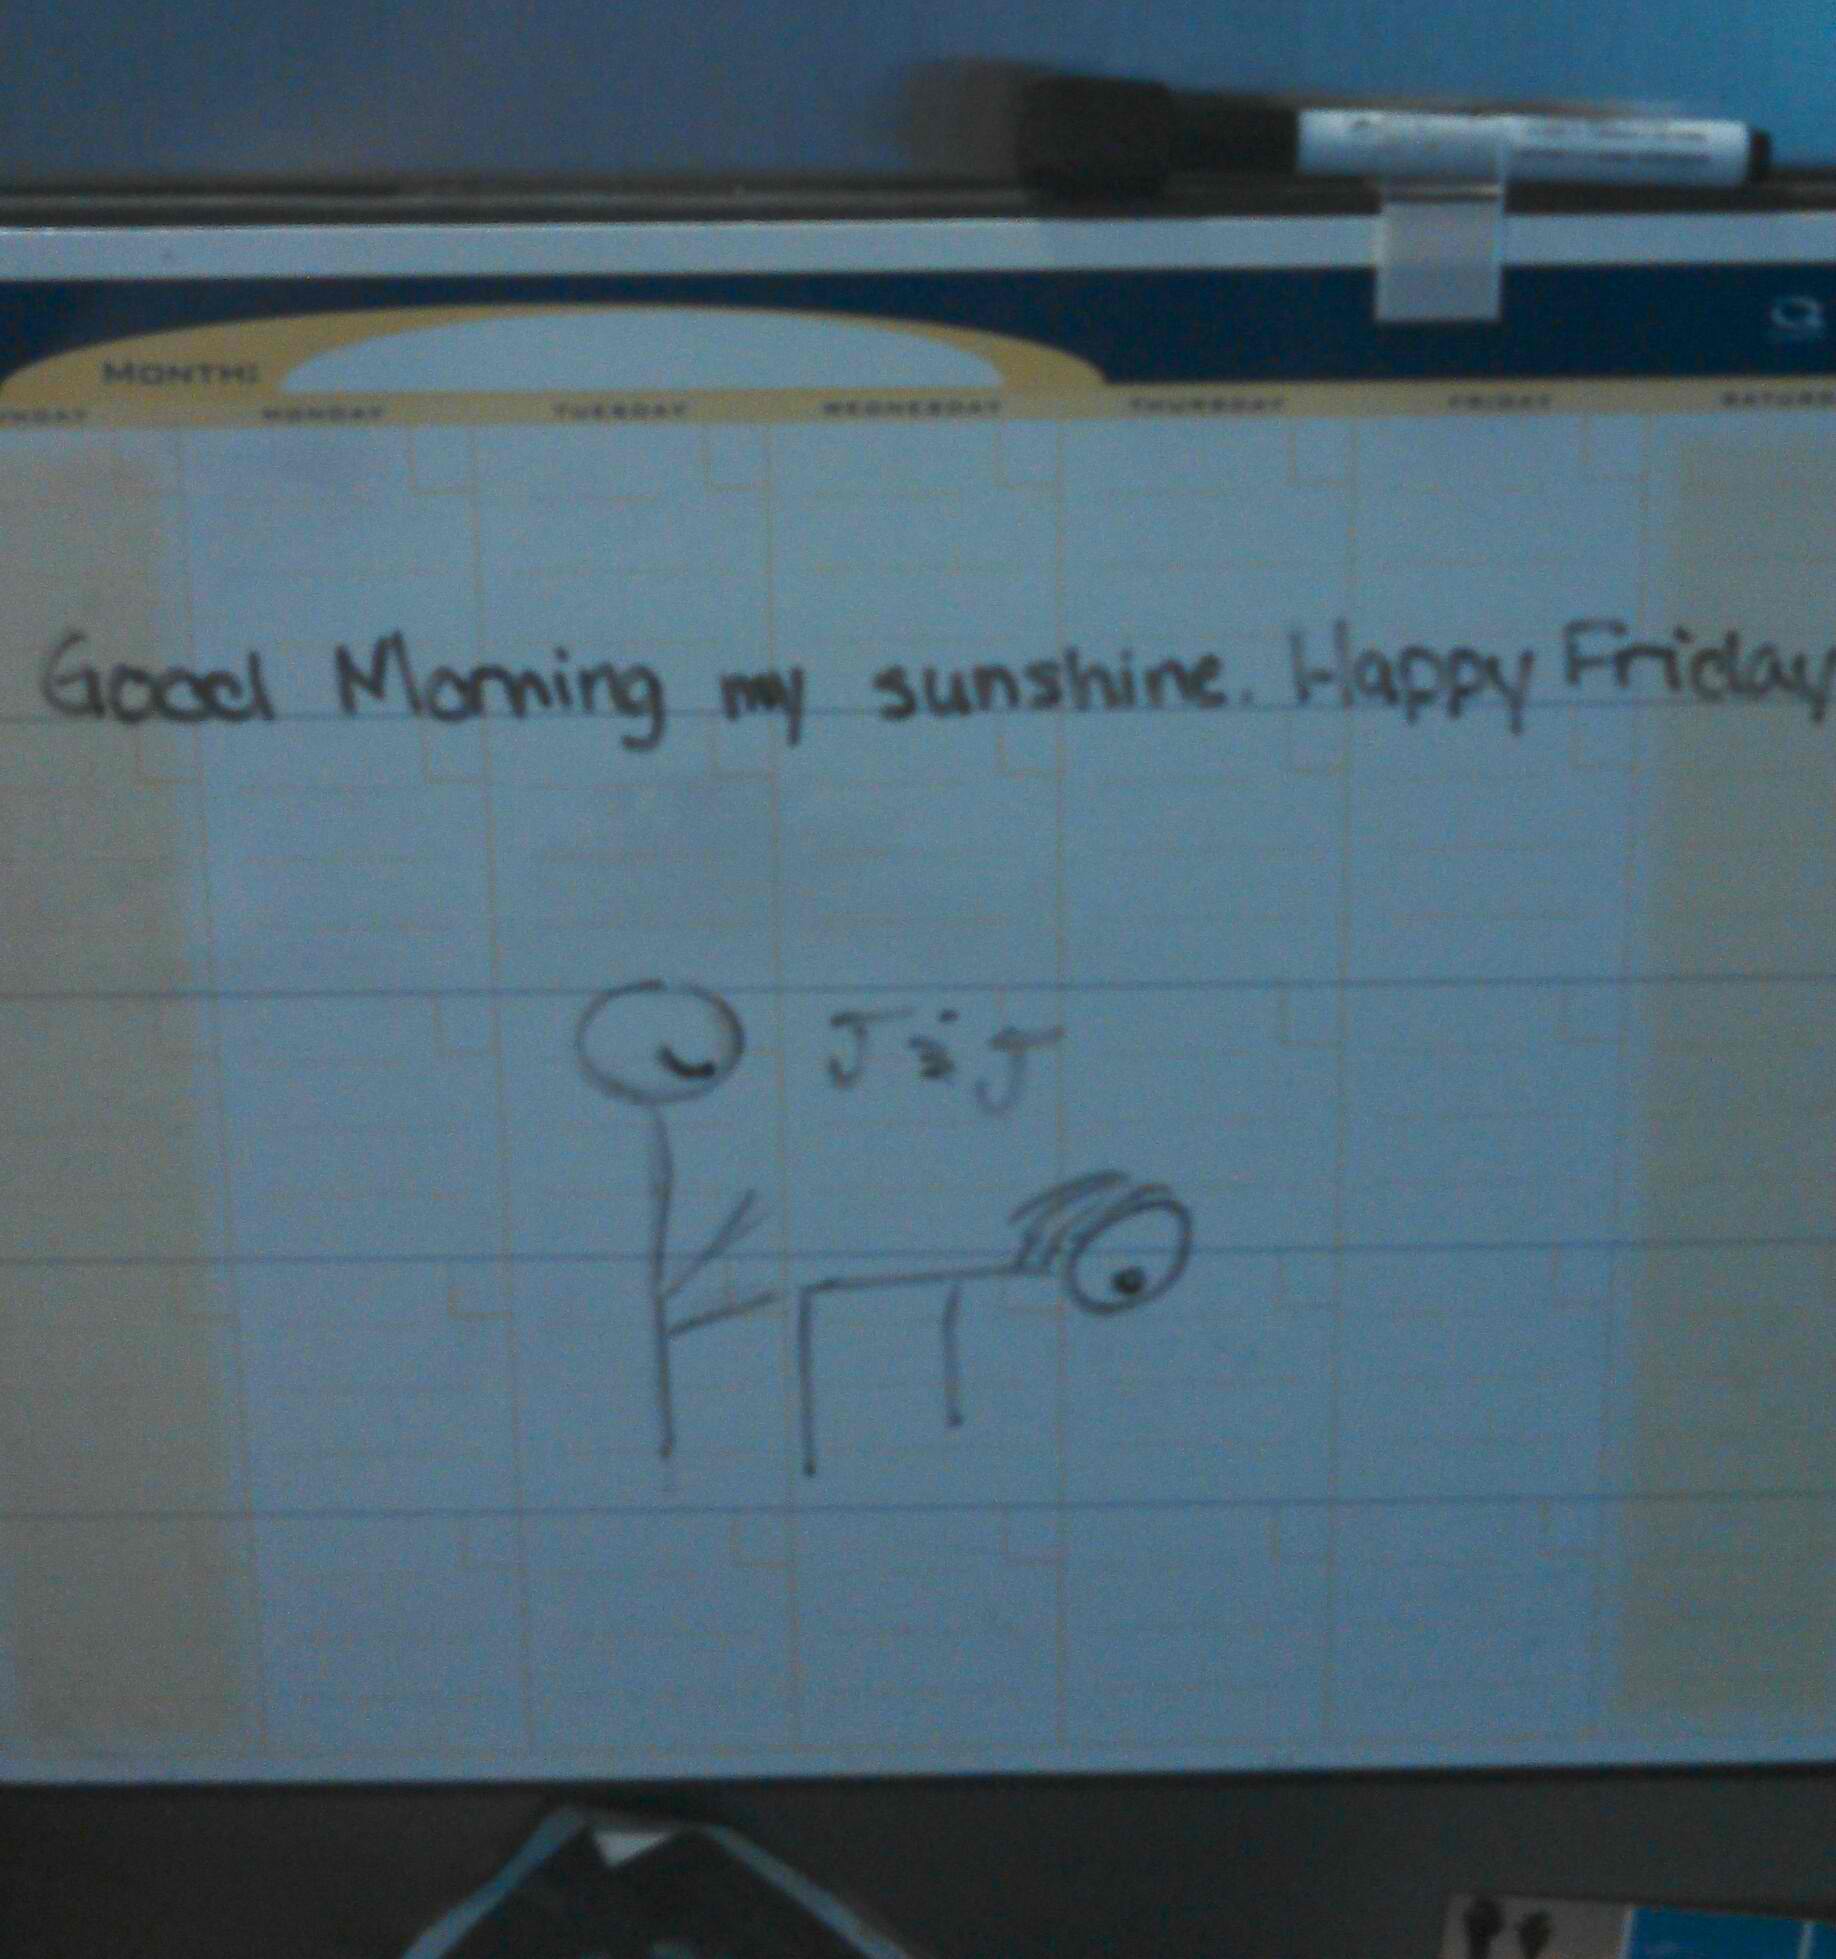 MONTH:
MONDAY TUESDAY WEDNESDAY THURSDAY FRIDAY
Good Morning my sunshine. Happy Friday